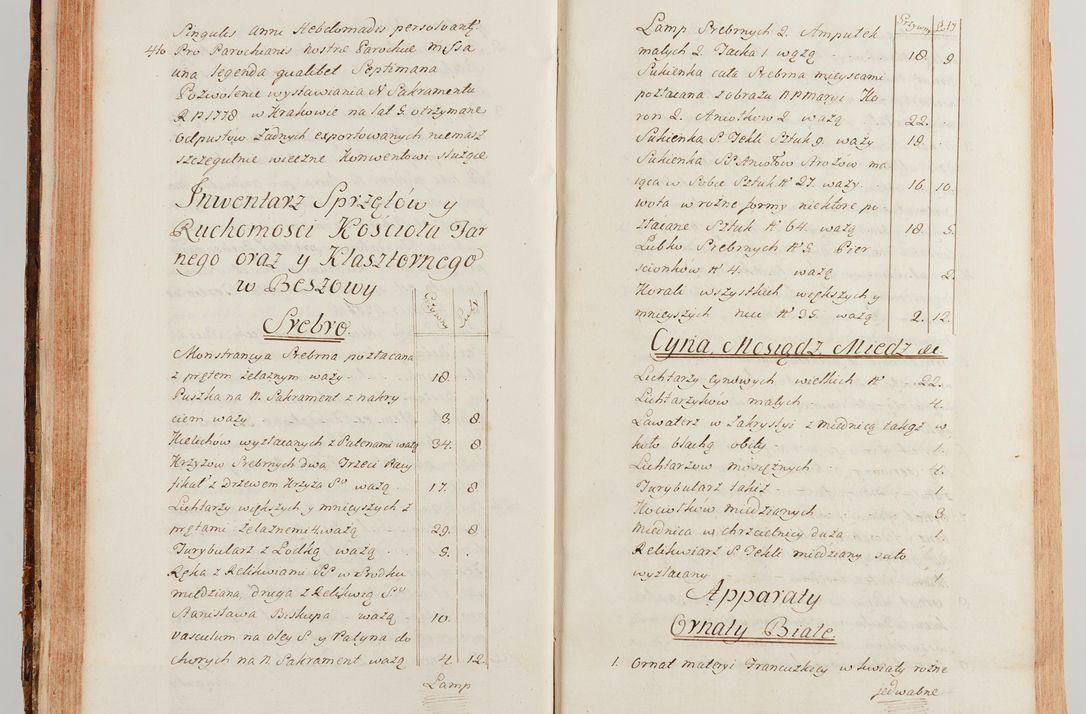 Singulis anni Hebdomadis persolvant.
4to Pro Parochianis nostrę Parochię missa
una legenda qualibet Septimana
Pozwolenie wystawiania N Sakramentu
R P 1778 w Krakowie na lat 5. otrzymane
Odpustow żadnych exportowanych niemasz
szczegulnie wieczne Konwentowi służące
Inwentarz Sprzętow y
Ruchomosci Kościoła Far
nego oraz y Klasztornego
w Beszowy
Grzywny Łuty
Srebro.
Monstrancya Srebrna pozłacana
z prętem żelaznym waży 18.
Puszka na N. Sakrament z nakry
ciem waży 3. 8.
Kielichów wyzłacanych z Patenami ważą 34. 8.
Krzyżow Srebrnych dwa Trzeci Pacy
fikał z Drzewem Krzyża So ważą 17. 8
Lichtarzy większych y mnieyszych z
prętami żelaznemi 4. ważą 29. 8
Turybularz z Łodką ważą 5.
Ręka z Relikwiami SS w Srodku
miedziana, druga z Relikwią So
Stanisława Biskupa ważą 10.
Vasculum na oley S y Patyna do
chorych na N Sakrament ważą 4. 12.
Lamp
Grzywny Łuty
Lamp Srebrnych 2. Ampułek
małych 2. Tacka 1 ważą 18. 9.
Sukienka cała Srebrna mieyscami
pozłacana z obrazu N P Maryi Ko
ron 2. Aniołkow 2. ważą 22.
Sukienka S Tekli Sztuk 9. waży 19.
Sukienka SS Aniołow Strożow ma
iąca w sobie Sztuk N 27. waży 16. 10.
wota w rożne formy niektore po
złacane Sztuk N 64. ważą 18. 5.
Lubko Srebrnych N 5 Pier
scionkow N 4. ważą 2.
Korali wszystkich większych y
mnieyszych nici N 35. ważą 2. 12.
Cyna, Mosiądz, Miedź etc
Lichtarzy Cynowych wielkich N 22.
Lichtarzykow małych 4.
Lawaterz w Zakrystyi z miednicą takąż w
koło blachą obity 1.
Lichtarzow mosiężnych 4.
Turybularz takiż 1.
Kociołkow miedzianych 3.
Miednica w chrzcielnicy duża 1.
Relikwiarz S Tekli miedziany suto
wyzłacany 1.
Apparaty
Ornaty Białe.
1. Ornat materyi Francuzkiey w kwiaty rożne
jedwabne